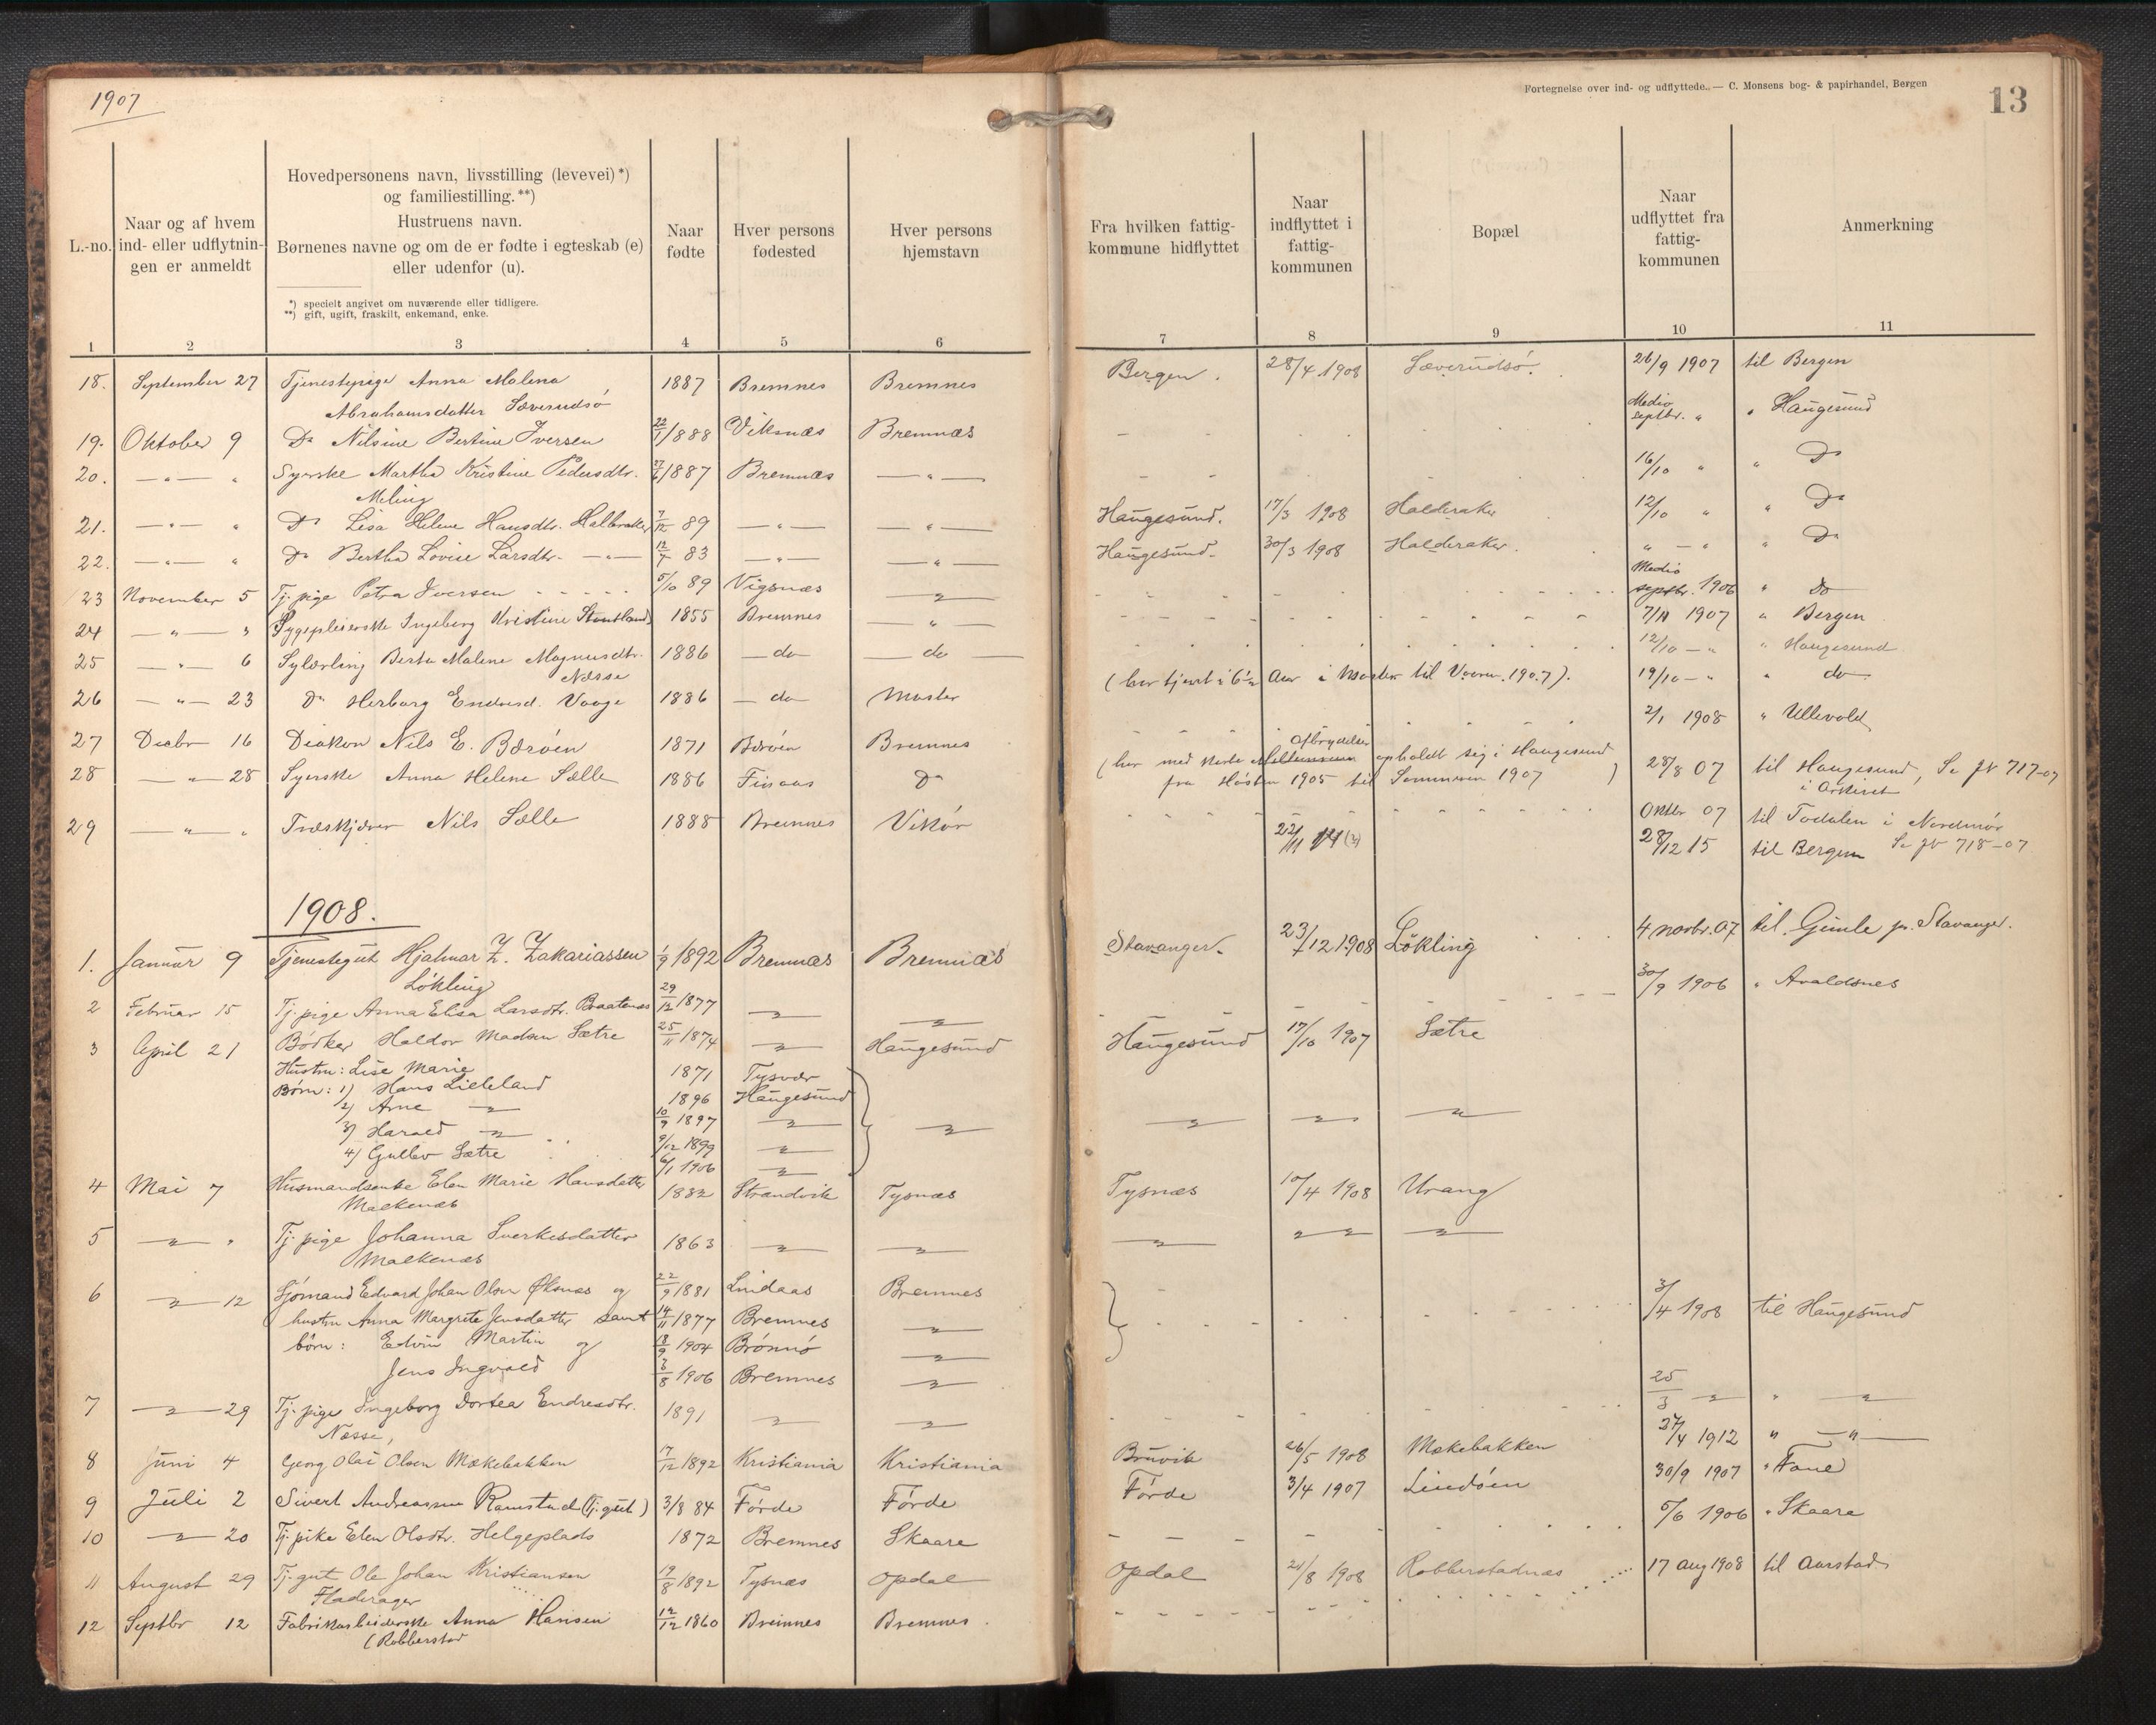 1907
Fortegnelse over ind- og udflyttede. — C. Monsens bog- & papirhandel, Bergen
13
L.-no.
Naar og af hvem
ind- eller udflytnin-
gen er anmeldt
Hovedpersonens navn, livsstilling (levevei) *)
og familiestilling. **)
Hustruens navn.
Børnenes navne og om de er fødte i egteskab (e)
eller udenfor (u).
*) specielt angivet om nuværende eller tidligere.
**) gift, ugift, fraskilt, enkemand, enke.
Naar
fødte
Hver persons
fødested
Hver persons
hjemstavn
Fra hvilken fattig-
kommune hidflyttet
Naar
indflyttet i
fattig-
kommunen
Bopæl
Naar
udflyttet fra
fattig-
kommunen
Anmerkning
1 2 3 4 5 6 7 8 9 10 11
18. September 27 Tjenestepige Anna Malena 1887 Bremnes Bremnes Bergen. 28/4 1908 Sæverudsö. 26/9 1907 til Bergen
Abrahamsdatter Sæverudsö
19. Oktober 9 Do Nilsine Bertine Iversen 22/1 1888 Viksnæs Bremnæs Medio septbr. " " Haugesund
20. — " — " Syerske Martha Kristine Pedersdtr. 27/6 1887 Bremnæs — " — 16/10 " " Do
Meling
21. — " — " Do Lisa Helene Hansdtr. Halleraker 7/12 89 — " — — " — Haugesund. 17/3 1908 Halderaker 12/10 " " Do
22. — " — " Do Bertha Lovise Larsdtr. — " — 83 — " — — " — Haugesund. 30/3 1908 Halderaker. " — " " Do
23 November 5 Tj. pige Petra Iversen 5/10 89 Vigsnæs — " — Medio septbr. 1906 " Do
24 — " — " Sygepleierske Ingeborg Kristine 1855 Bremnes — " — 7/11 1907 " Bergen
25 — " — 6 Sylærling Berta Malene Magnusdtr. 1886 — do — do — 12/10 — " " Haugesund
Næsse
26 — " — 23 Do Herborg Endresd. Vaage 1886 — do Moster (har tjent i 6½ Aar i Moster til Vaaren 1907). 19/10 — " " do
27 Decbr 16 Diakon Nils E. Børöen 1871 Børöen Bremnes 2/1 1908 " Ullevold
28 — " — 28 Syerske Anna Helene Sælle 1886 Finaas Do (har med korte Afbrydelser opholdt sig i Haugesund 28/8 07 til Haugesund, Se JN 717-07
fra Hösten 1905 til Sommeren 1907) i Arkivet
29 — " — " Træskjærer Nils Sælle 1888 Bremnes Vikör Oktbr 07 til Todalen i Nordmör
22/11 14 28/12 15 til Bergen Se JN 718-07
1908.
1. Januar 9 Tjenestegut Hjalmar Z. Zakariassen 1/9 1892 Bremnæs Bremnæs Stavanger. 23/12 1908 Lökling 4 novbr. 07 til Gimle pr. Stavanger.
Lökling
2 Februar 15 Tj. pige Anna Elisa Larsdtr. Braatenæs 29/12 1877 — " — — " — 30/9 1906 " Avaldsnes
3 April 21 Bödker Haldor Madsen Sætre 25/11 1874 — " — Haugesund Haugesund 17/10 1907 Sætre
Hustru: Lise Marie 1871 Tysvær
Börn: 1) Hans Lieleland 1896 Haugesund
2) Arne — " — 10/9 1897 — " — — " — — " — — " — — " —
3) Harald — " — 9/12 1899 — " —
4) Gullev Sætre 6/1 1906 — " —
4 Mai 7 Husmandsenke Elen Marie Hansdatter 1832 Strandvik Tysnæs Tysnæs 10/4 1908 Urang
Malkenæs
5 — " — " Tj. pige Johanna Sverkesdatter 1863 — " — — " — — " — " — " — " —
Malkenæs
6 — " — 12 Sjömand Edvard Johan Olsen Öksnes og 22/9 1881 Lindaas Bremnes
hustru Anna Margrete Jensdatter samt 14/11 1877 Bremnes — " — 3/4 1908 til Haugesund
börn: Edvin Martin og 18/9 1904 Brönnö — " —
Jens Ingvald 3/8 1906 Bremnes — " —
7 — " — 29 Tj. pige Ingeborg Dortea Endresdtr. 1891 — " — — " — 25/3 — " — " — " —
Næsse,
8 Juni 4 Georg Olai Olsen Mækebakken 17/12 1892 Kristiania Kristiania Bruvik 26/5 1908 Mækebakken 27/4 1912 " — " —
9 Juli 2 Sivert Andreassen Ramstad (Tj. gut) 3/8 84 Förde Förde Förde 3/4 1907 Lindöen 30/9 1907 " Fane
10 — " — 20 Tj. pike Elen Olsdtr. Helgeplads 1872 Bremnes Skaare 5/6 1906 " Skaare
11 August 29 Tj. gut Ole Johan Kristiansen 19/8 1892 Tysnæs Opdal Opdal 21/8 1908 Robberstadnæs 17 aug 1908 til Aarstad
Fladerager
12 Septbr 12 Fabrikarbeiderske Anna Hansen 12/12 1860 Bremnes Bremnes.
(Robberstad